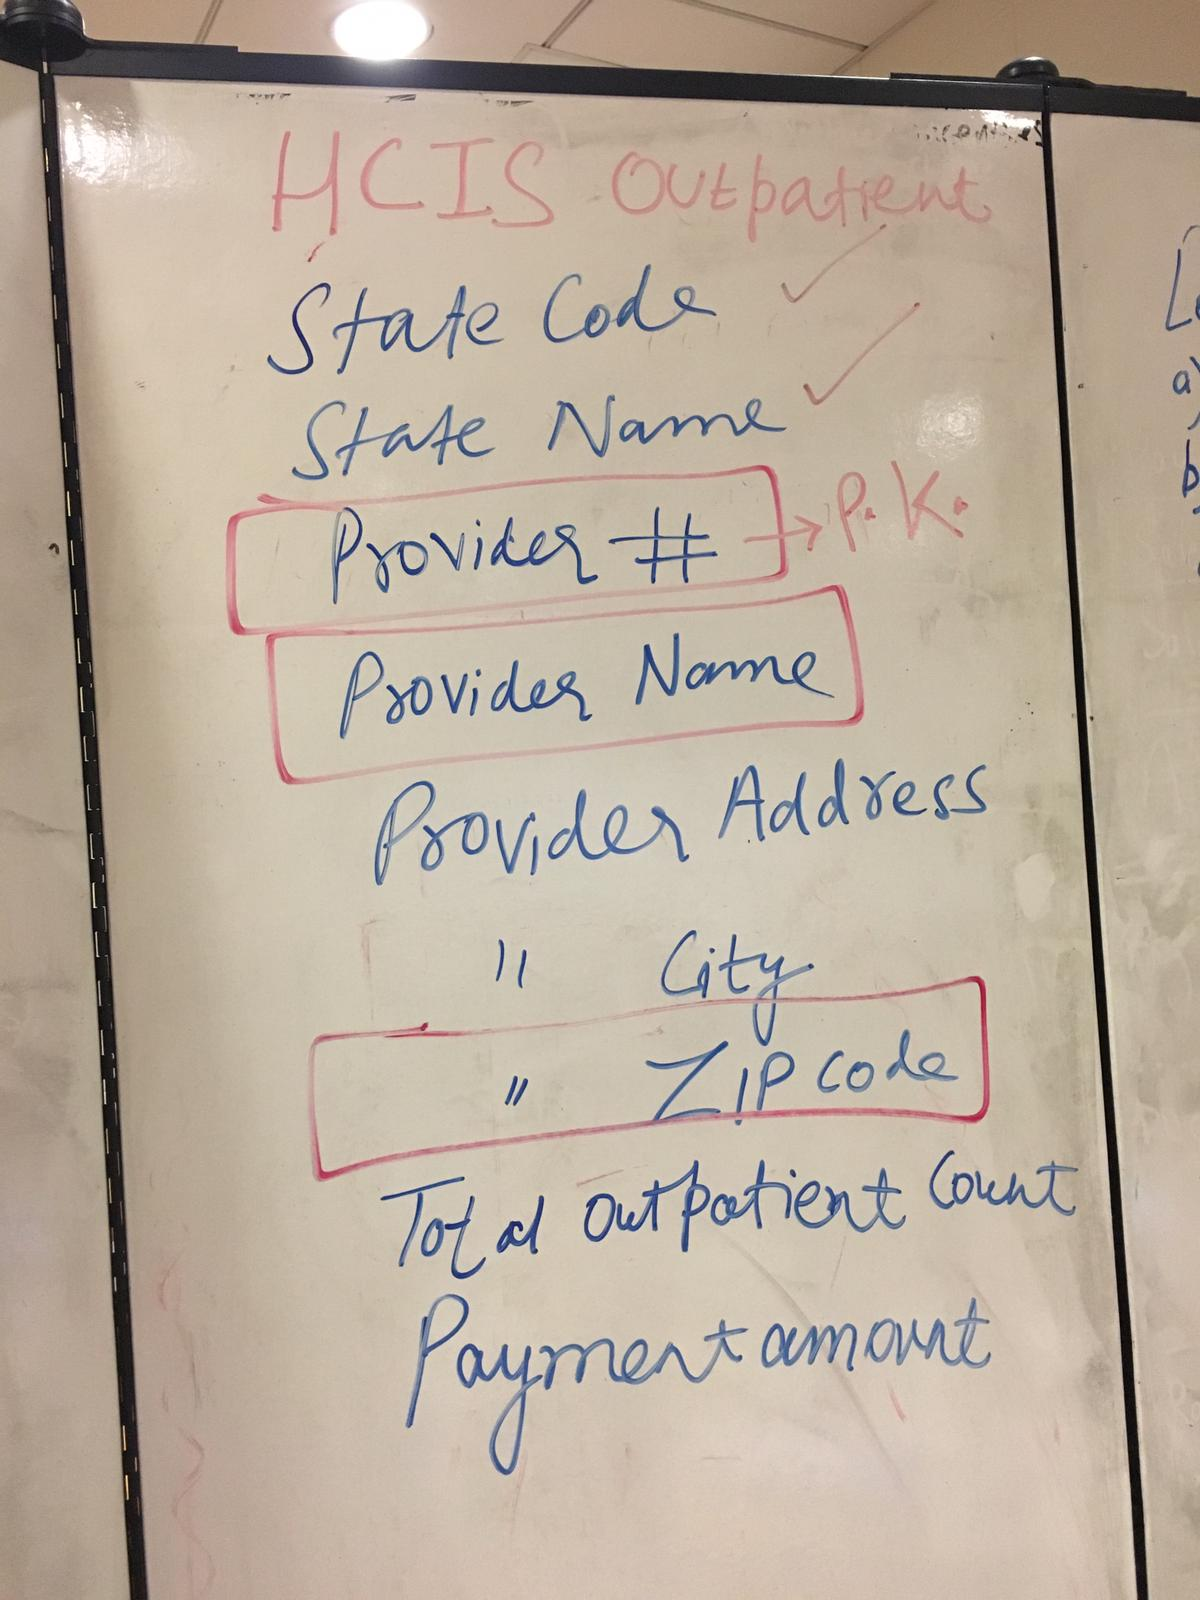 HCIS Outpatient
State Code ✓
State Name ✓
Provider # → P.K.
Provider Name
Provider Address
" City
" ZIP code
Total outpatient Count
Payment amount
a
b